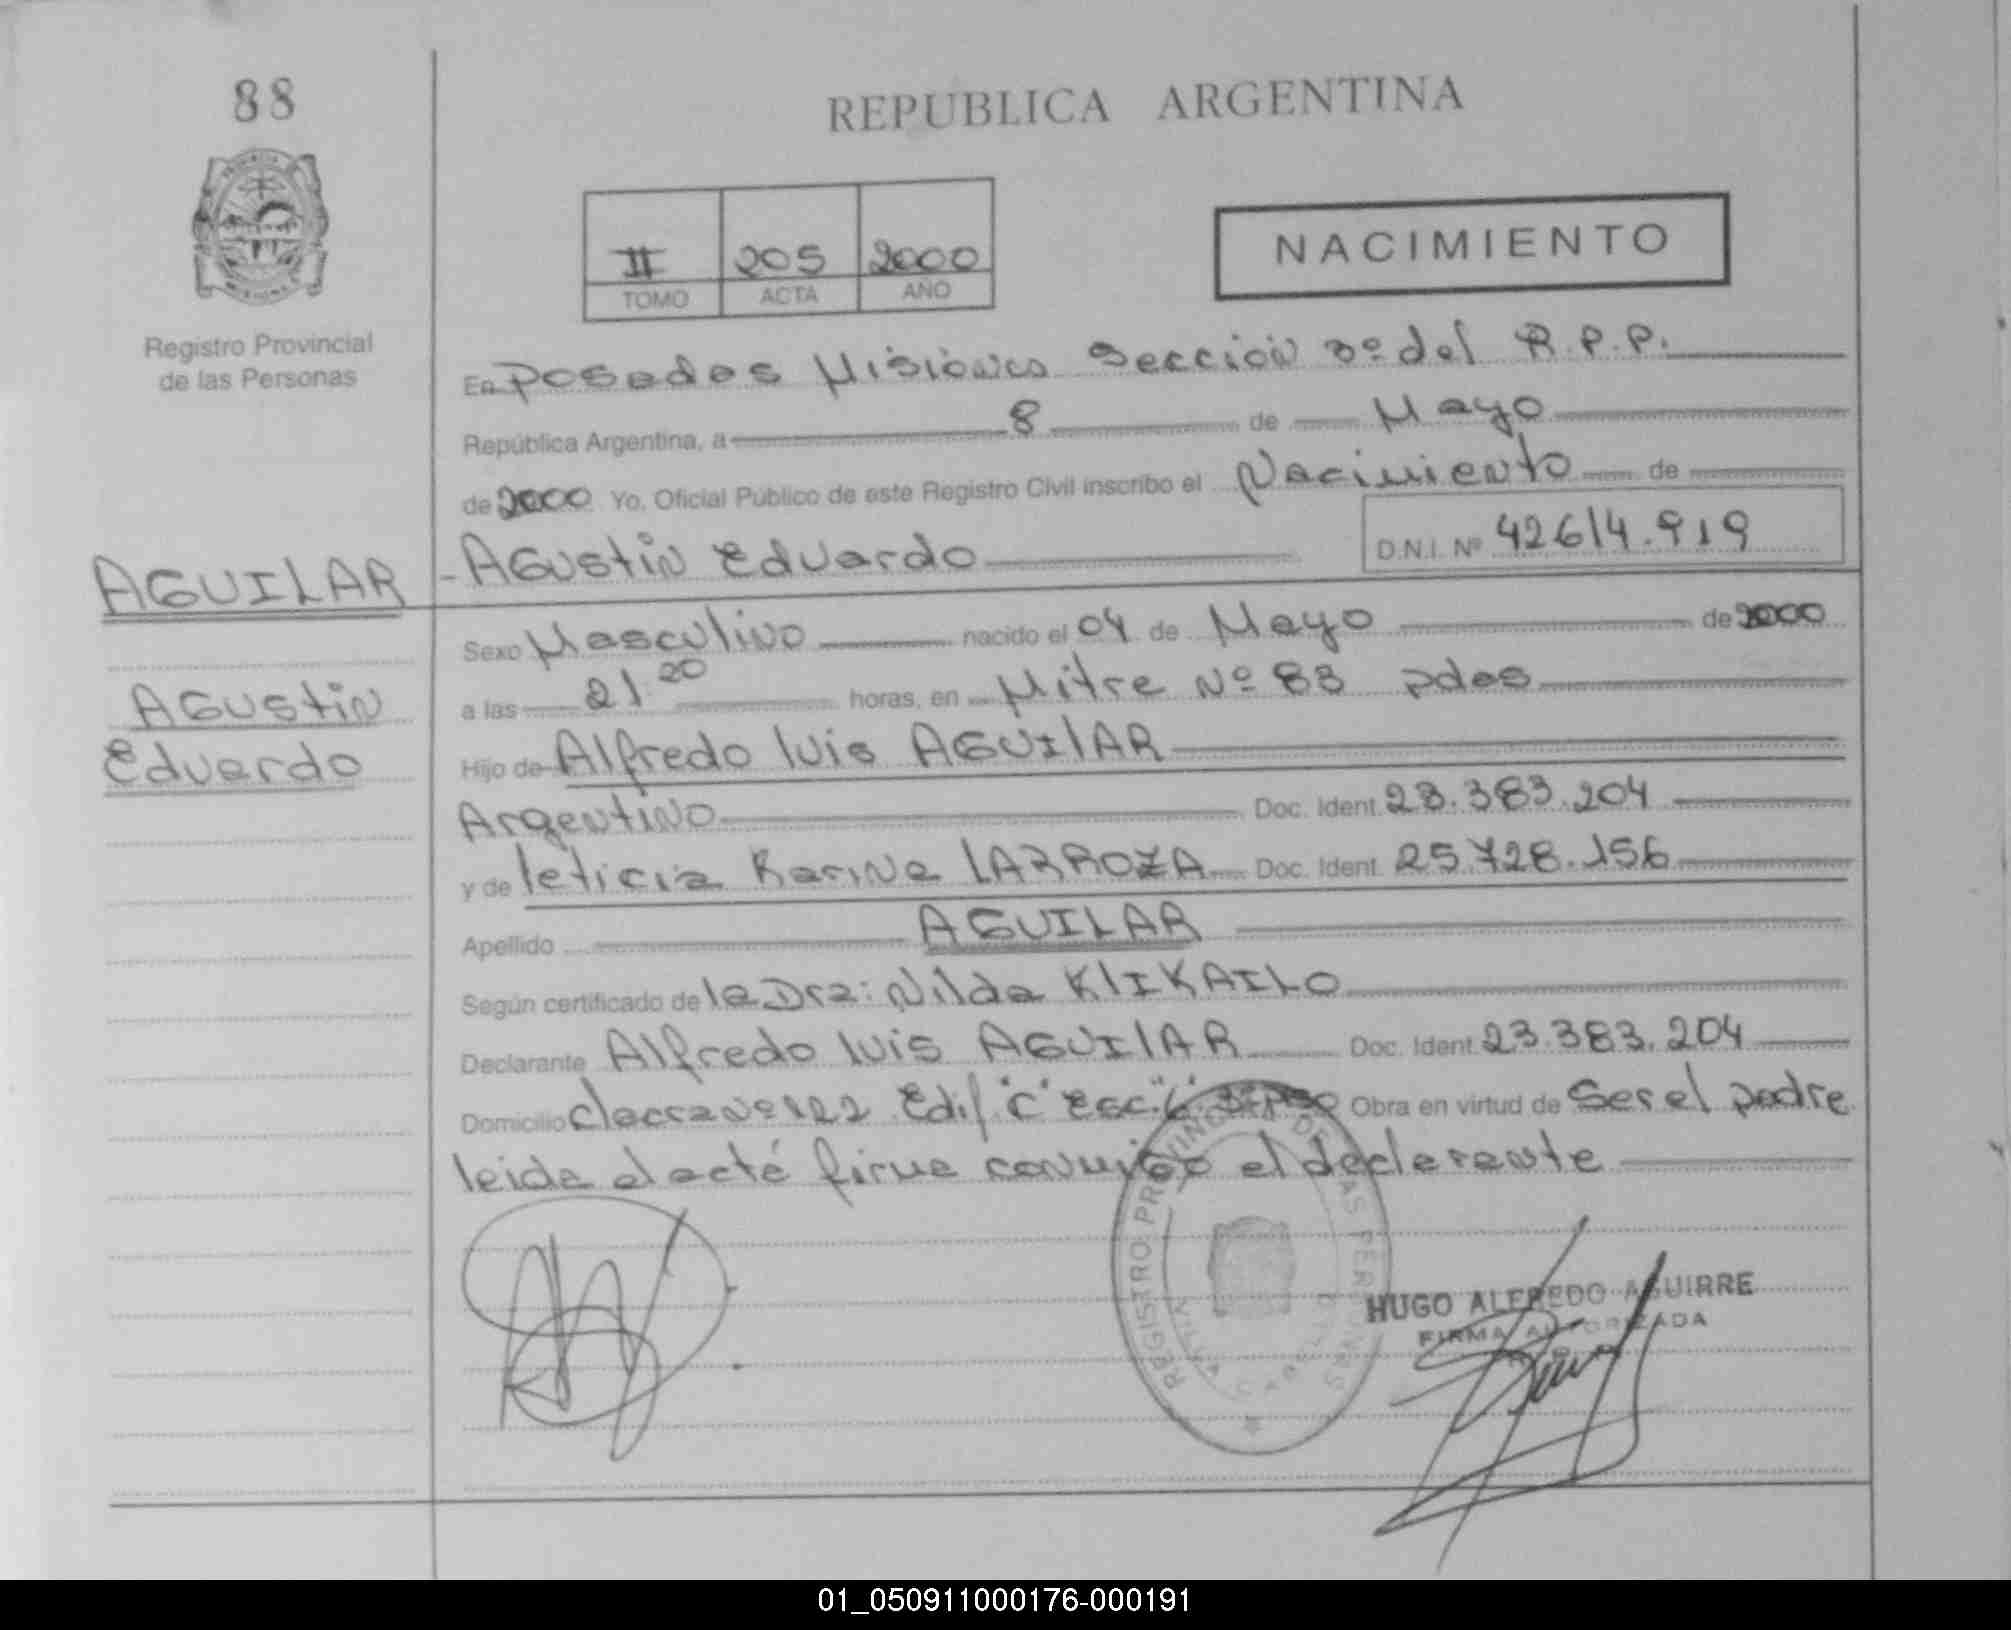 88
REPUBLICA ARGENTINA
II 205 2000
TOMO ACTA AÑO
NACIMIENTO
Registro Provincial
de las Personas
En Posadas Misiones Sección 3º del R.P.P.
República Argentina, a 8 de Mayo
de 2000 Yo, Oficial Público de este Registro Civil inscribo el Nacimiento de
AGUILAR - AGustin Eduardo D.N.I. Nº 42614.919
Sexo Masculino nacido el 04 de Mayo de 2000
AGustin
Eduardo
a las 21.20 horas, en Mitre Nº 83 pdas
Hijo de Alfredo luis AGUIlAR
Argentino Doc. Ident. 23.383.204
y de leticia Karina lARROZA Doc. Ident. 25.728.156
Apellido AGUILAR
Según certificado de la Dra: Nilda KlIKAILO
Declarante Alfredo luis AGUIlAR Doc. Ident. 23.383.204
Domicilio chacra Nº 122 Edif "C" Esc. Obra en virtud de Ser el padre
leida el acta firma conmigo el declarante
REGISTRO PROVINCIAL DE LAS PERSONAS
HUGO ALFREDO AGUIRRE
FIRMA AUTORIZADA
01_050911000176-000191